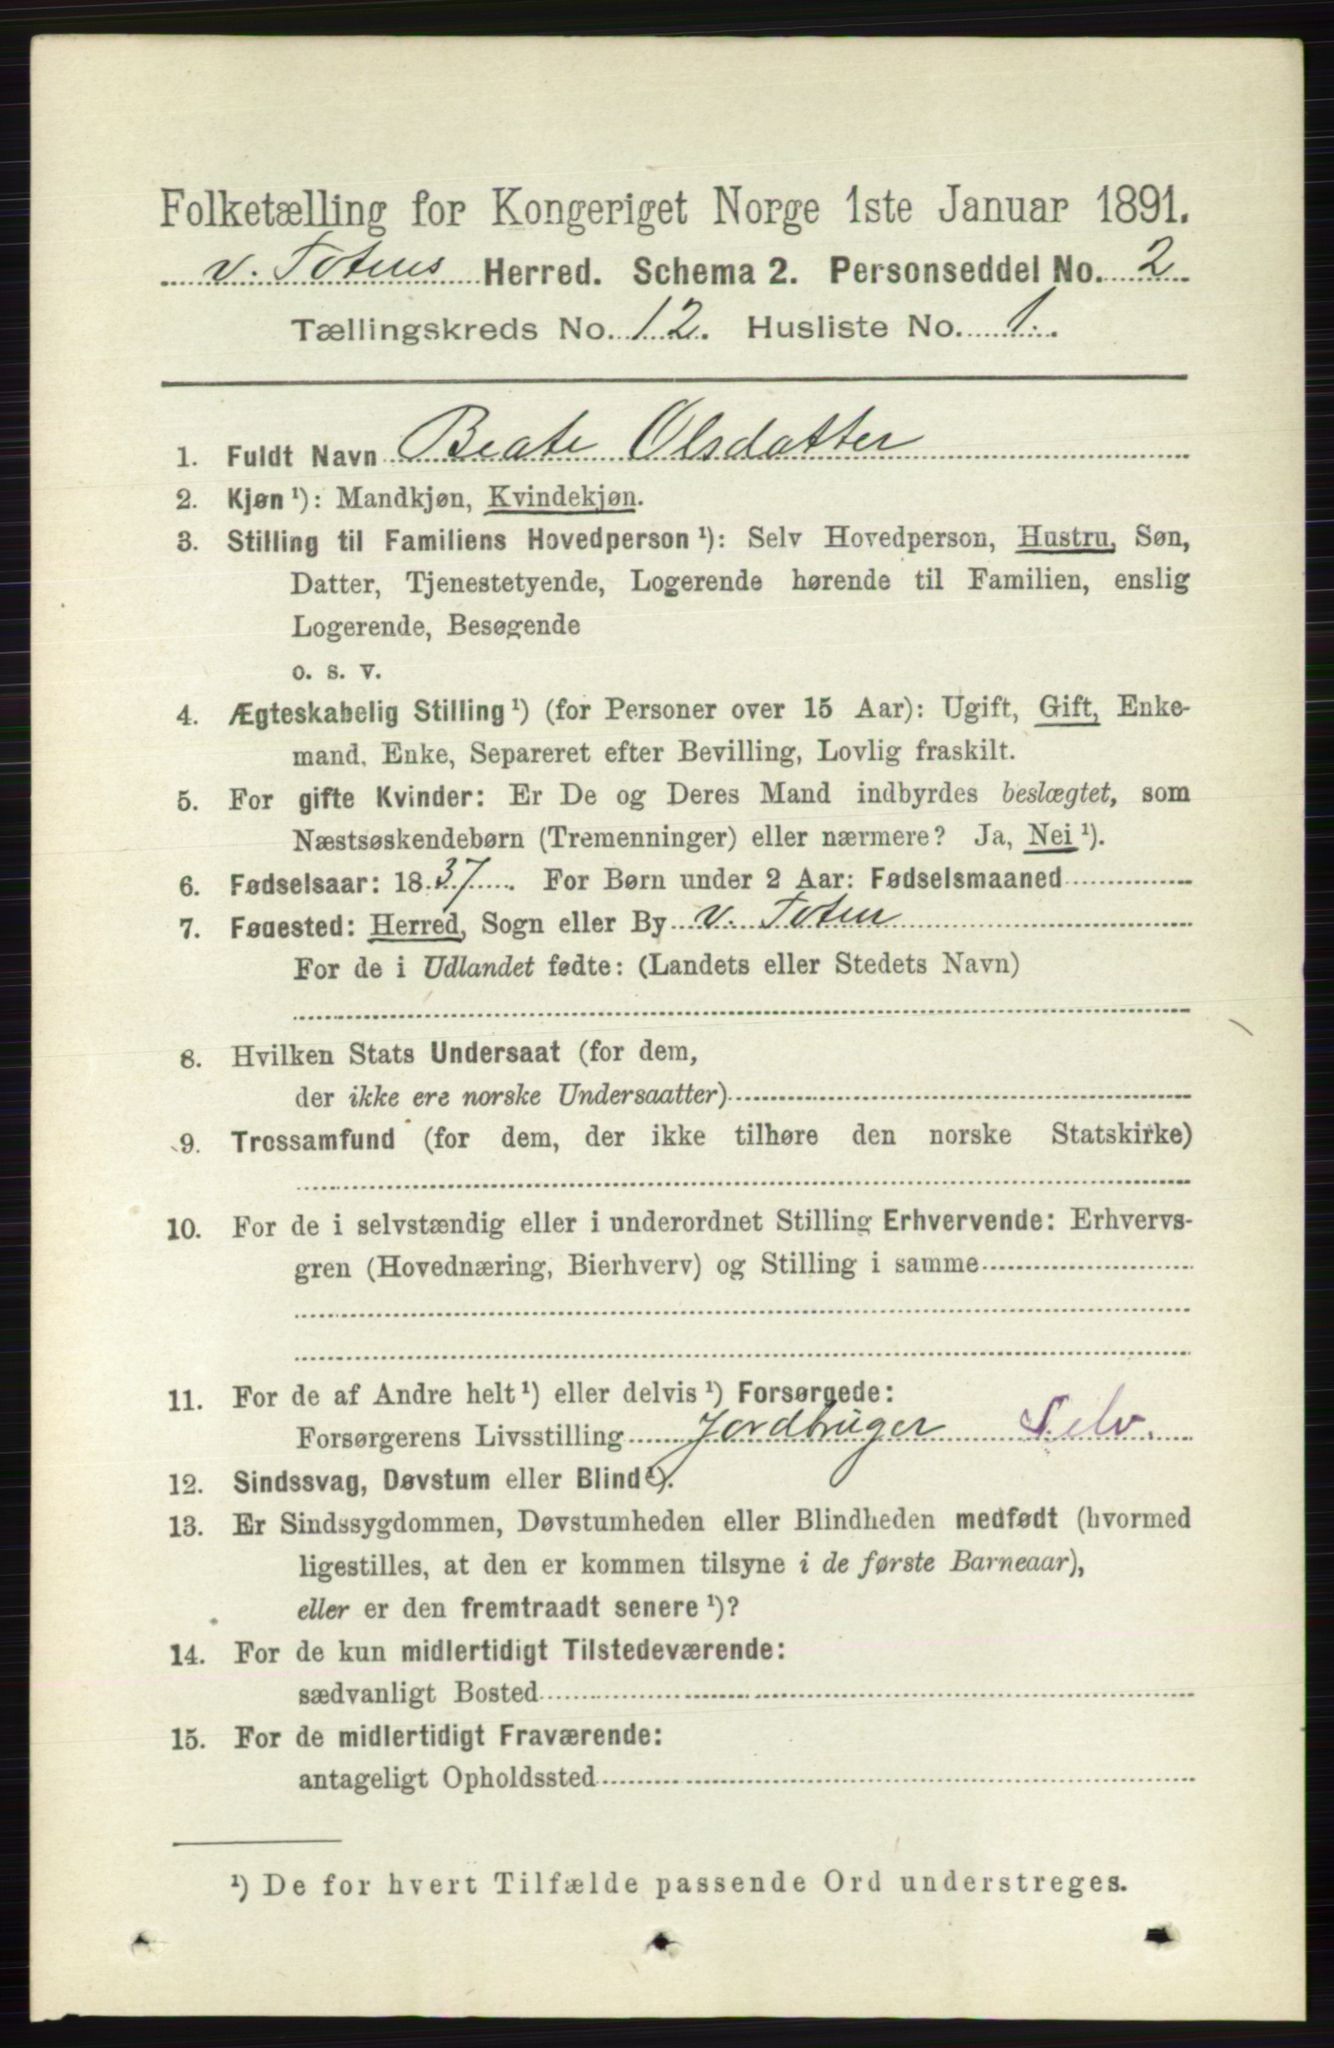 Folketælling for Kongeriget Norge 1ste Januar 1891.
v. Totens Herred. Schema 2. Personseddel No. 2
Tællingskreds No. 12. Husliste No. 1.
1. Fuldt Navn Beate Olsdatter
2. Kjøn ¹): Mandkjøn, Kvindekjøn.
3. Stilling til Familiens Hovedperson ¹): Selv Hovedperson, Hustru, Søn,
Datter, Tjenestetyende, Logerende hørende til Familien, enslig
Logerende, Besøgende
o. s. v.
4. Ægteskabelig Stilling ¹) (for Personer over 15 Aar): Ugift, Gift, Enke-
mand, Enke, Separeret efter Bevilling, Lovlig fraskilt.
5. For gifte Kvinder: Er De og Deres Mand indbyrdes beslægtet, som
Næstsøskendebørn (Tremenninger) eller nærmere? Ja, Nei ¹).
6. Fødselsaar: 1837. For Børn under 2 Aar: Fødselsmaaned
7. Fødested: Herred, Sogn eller By v. Toten
For de i Udlandet fødte: (Landets eller Stedets Navn)
8. Hvilken Stats Undersaat (for dem,
der ikke ere norske Undersaatter)
9. Trossamfund (for dem, der ikke tilhøre den norske Statskirke)
10. For de i selvstændig eller i underordnet Stilling Erhvervende: Erhvervs-
gren (Hovednæring, Bierhverv) og Stilling i samme
11. For de af Andre helt ¹) eller delvis ¹) Forsørgede:
Forsørgerens Livsstilling Jordbruger Selv.
12. Sindssvag, Døvstum eller Blind ¹).
13. Er Sindssygdommen, Døvstumheden eller Blindheden medfødt (hvormed
ligestilles, at den er kommen tilsyne i de første Barneaar),
eller er den fremtraadt senere ¹)?
14. For de kun midlertidigt Tilstedeværende:
sædvanligt Bosted
15. For de midlertidigt Fraværende:
antageligt Opholdssted
¹) De for hvert Tilfælde passende Ord understreges.